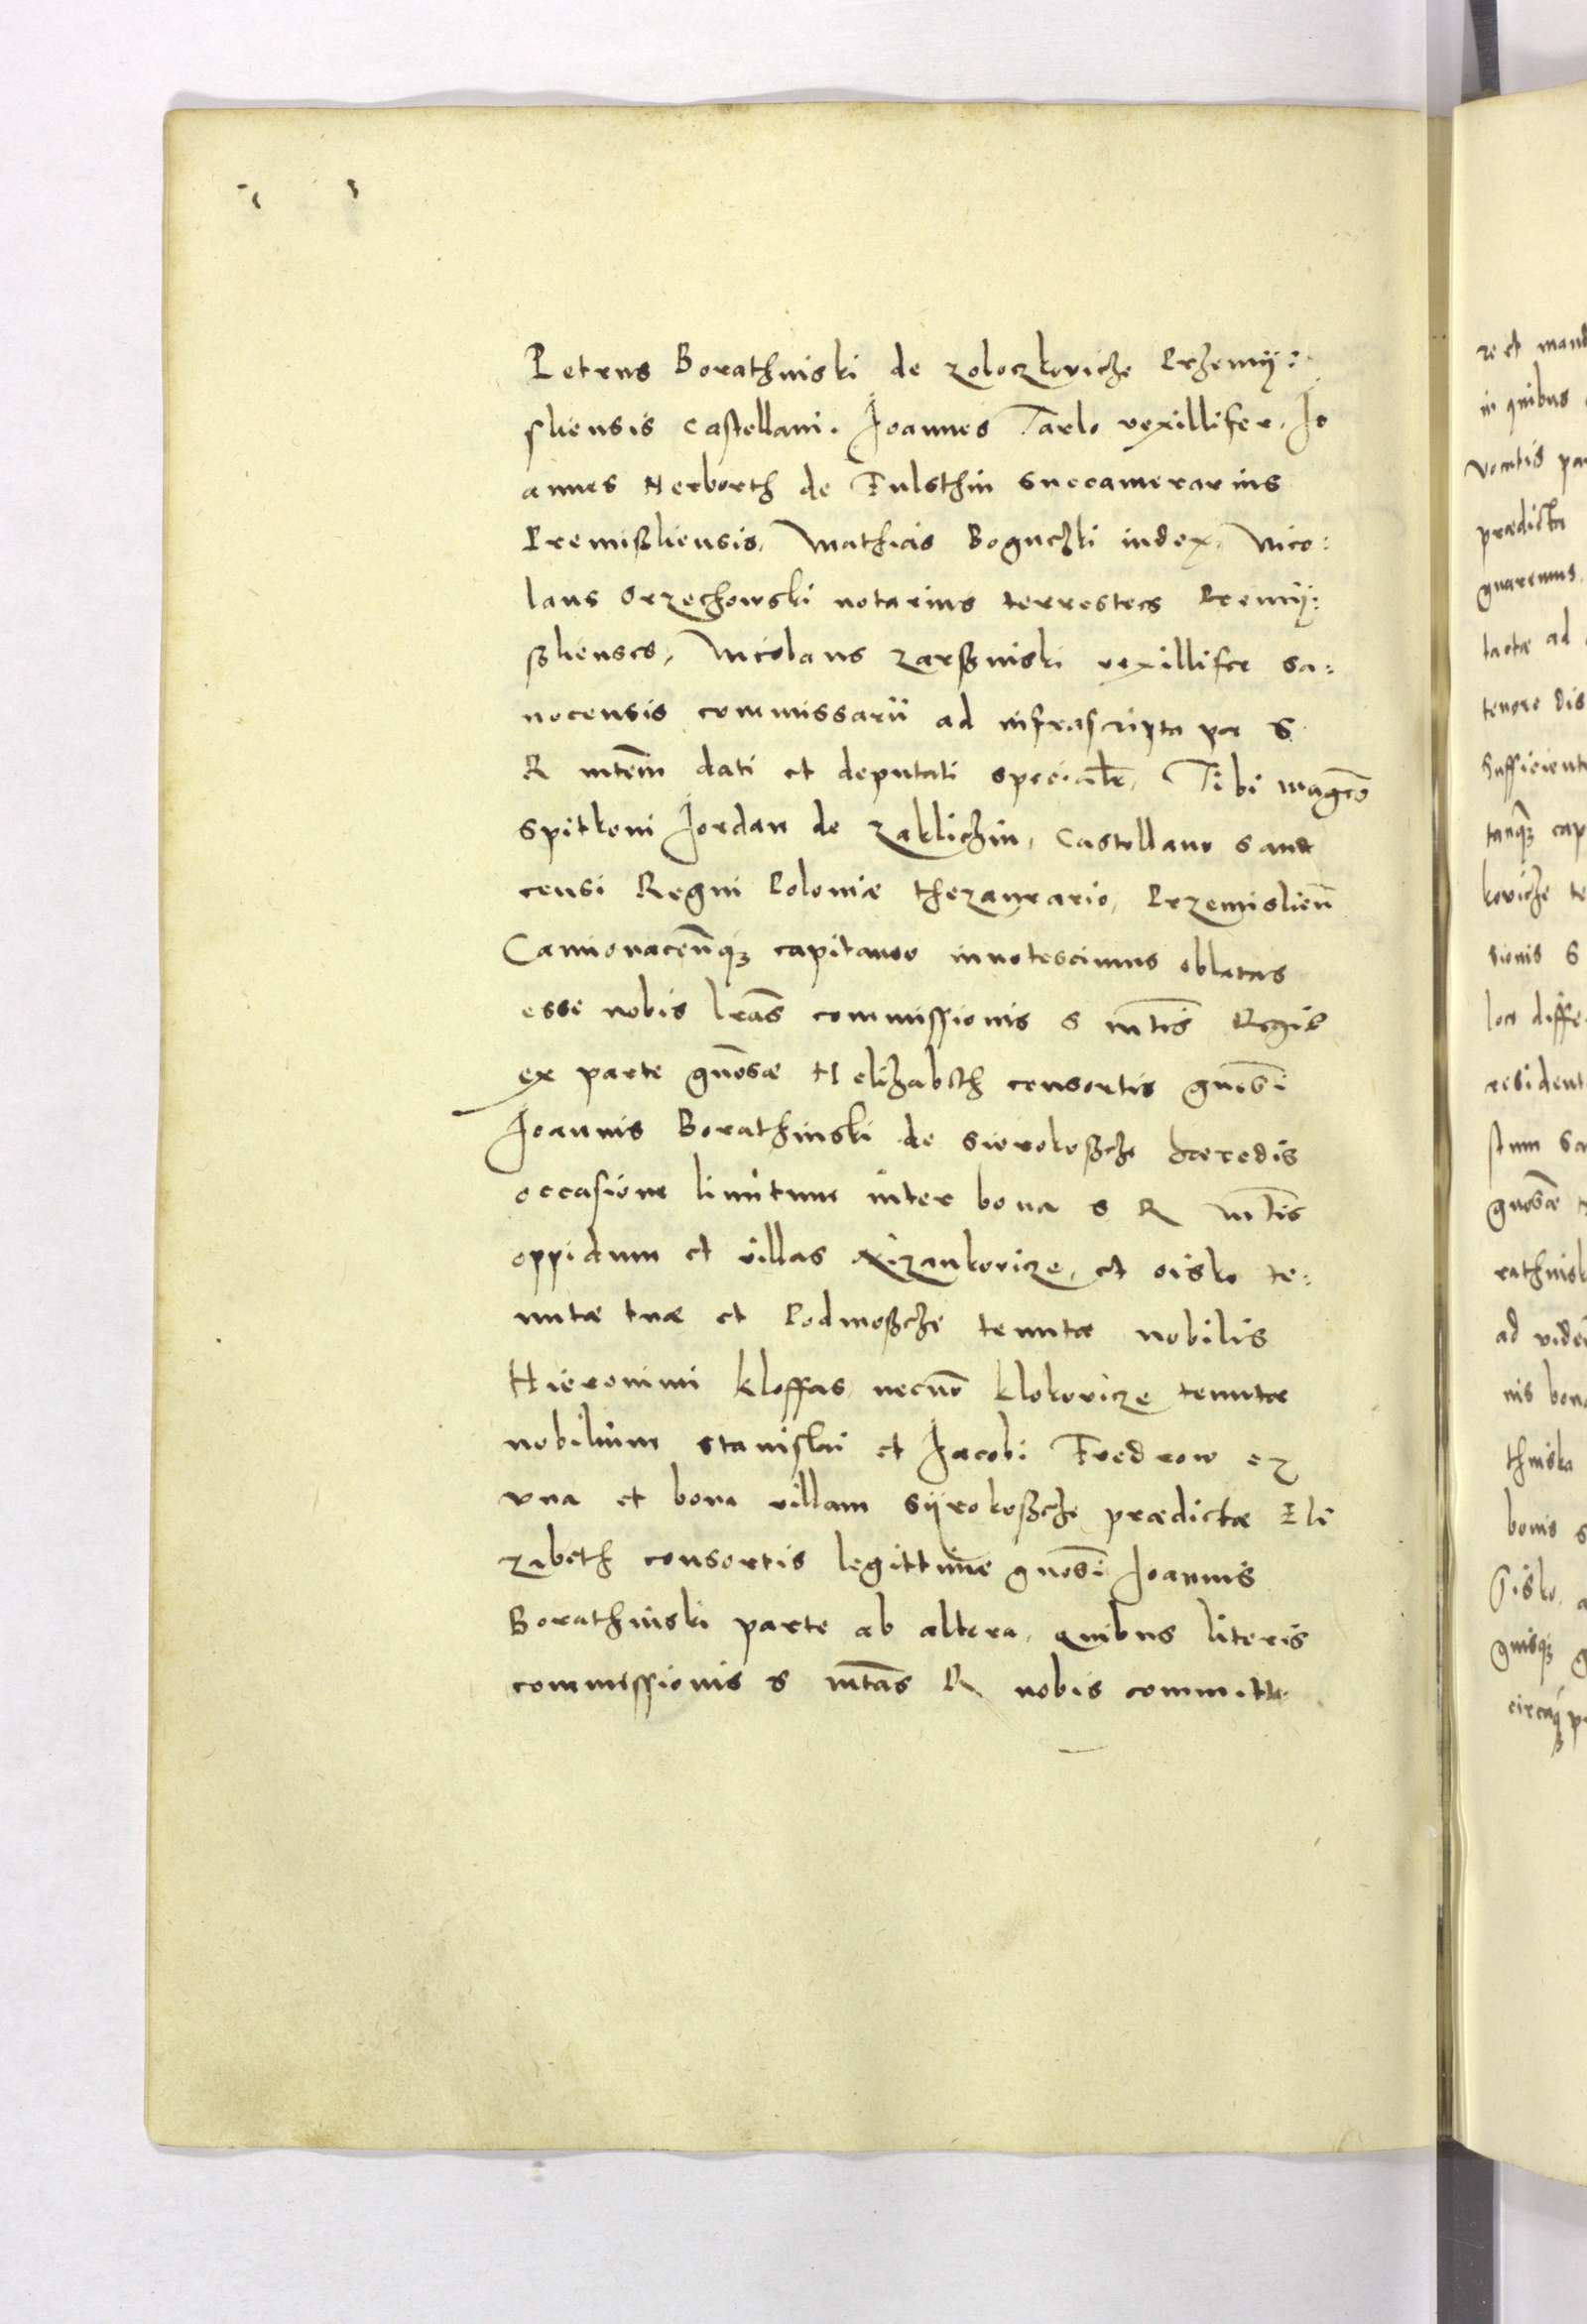 Petrus Borathinski de zoloczkoviche Przhemij:
sliensis castellani. Joannes Tarlo vexillifer. Jo
annes Herborth de Fulsthin succamerarius
Premißliensis, Mathias Boguczki iudex, Nico:
laus Orzechowski notarius terrestres Premij:
ßlienses, Nicolaus zarßinski vexillifer Sa:
nocensis commissarii ad infrascripta per S.
R mtem dati et deputati specialr, Tibi magco
Spitkoni Jordan de zaklichin, Castellano Sand
censi Regni Poloniæ thezaurario, Przemislien
Camionacenq; capitaneo innotescimus oblatas
esse nobis lras commissionis S mtis Regie
ex parte gnosæ Helizabeth consortis gnosi
Joannis Borathinski de Sierokoßche heredis
occasione limitum inter bona S R mtis
oppidum et villas Nizankovicze, et Sisko te:
nutæ tuæ et Podmoßche tenutæ nobilis
Hieronimi kloffas, necno klokovicze tenutæ
nobilium Stanislai et Jacobi Fredrow ex
una et bona villam Sijrokoßche prædictæ Eli
zabeth consortis legittime gnosi Joannis
Borathinski parte ab altera, quibus literis
commissionis S mtas R nobis committe
re et mand
in quibus
vocatis par
prædicta
guaremus,
tactæ ad
tenore dis
sufficiente
tanq; cap
koviche te
sionis S
loca diffe
resident
stum Sa
gnosæ
rathinsk
ad viden
nis bona
thinska
bonis S
Sisko, a
quisq; g
circaq; p